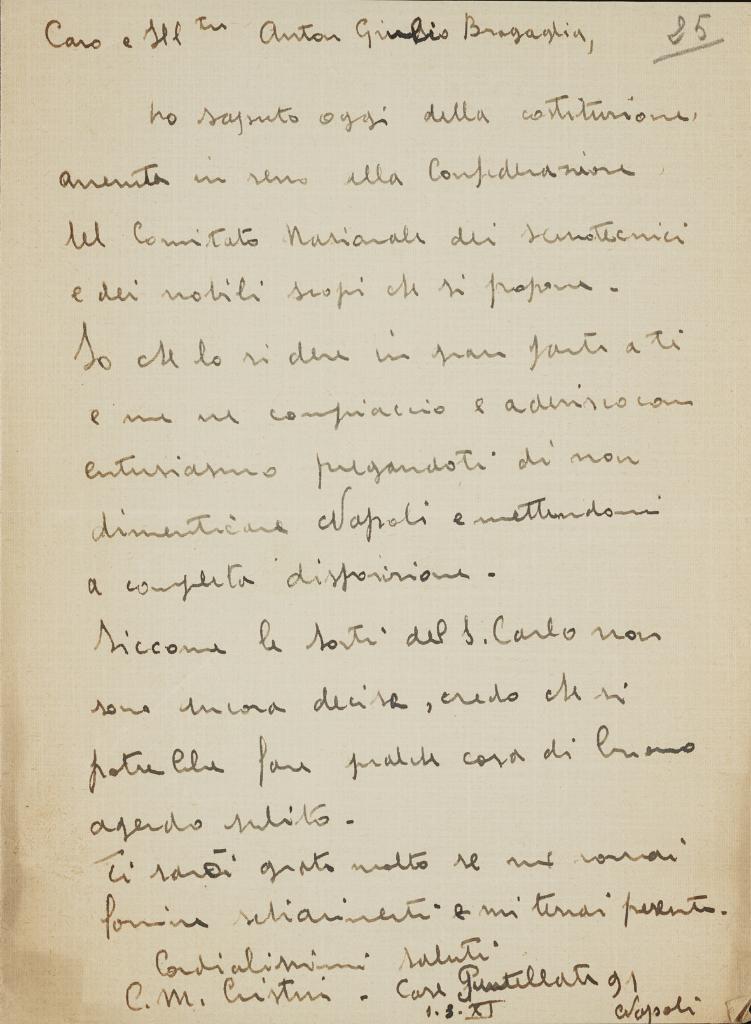 Caro e Ill tre Anton Giulio Bragaglia,
25
ho saputo oggi della costituzione,
avvenuta in seno alla Confederazione
del Comitato Nazionale dei scenotecnici
e dei nobili scopi che si propone.
So che lo si deve in gran parte a te
e me ne compiaccio e aderisco con
entusiasmo pregandoti di non
dimenticare Napoli e mettendomi
a completa disposizione.
Siccome le sorti del S. Carlo non
sono ancora decise, credo che si
potrebbe fare qualche cosa di buono
agendo subito.
Ti sarei grato molto se mi vorrai
fornire schiarimenti e mi terrai presente.
Cordialissimi saluti
C. M. Cristini - Case Puntellate 91
1.3.XI
Napoli